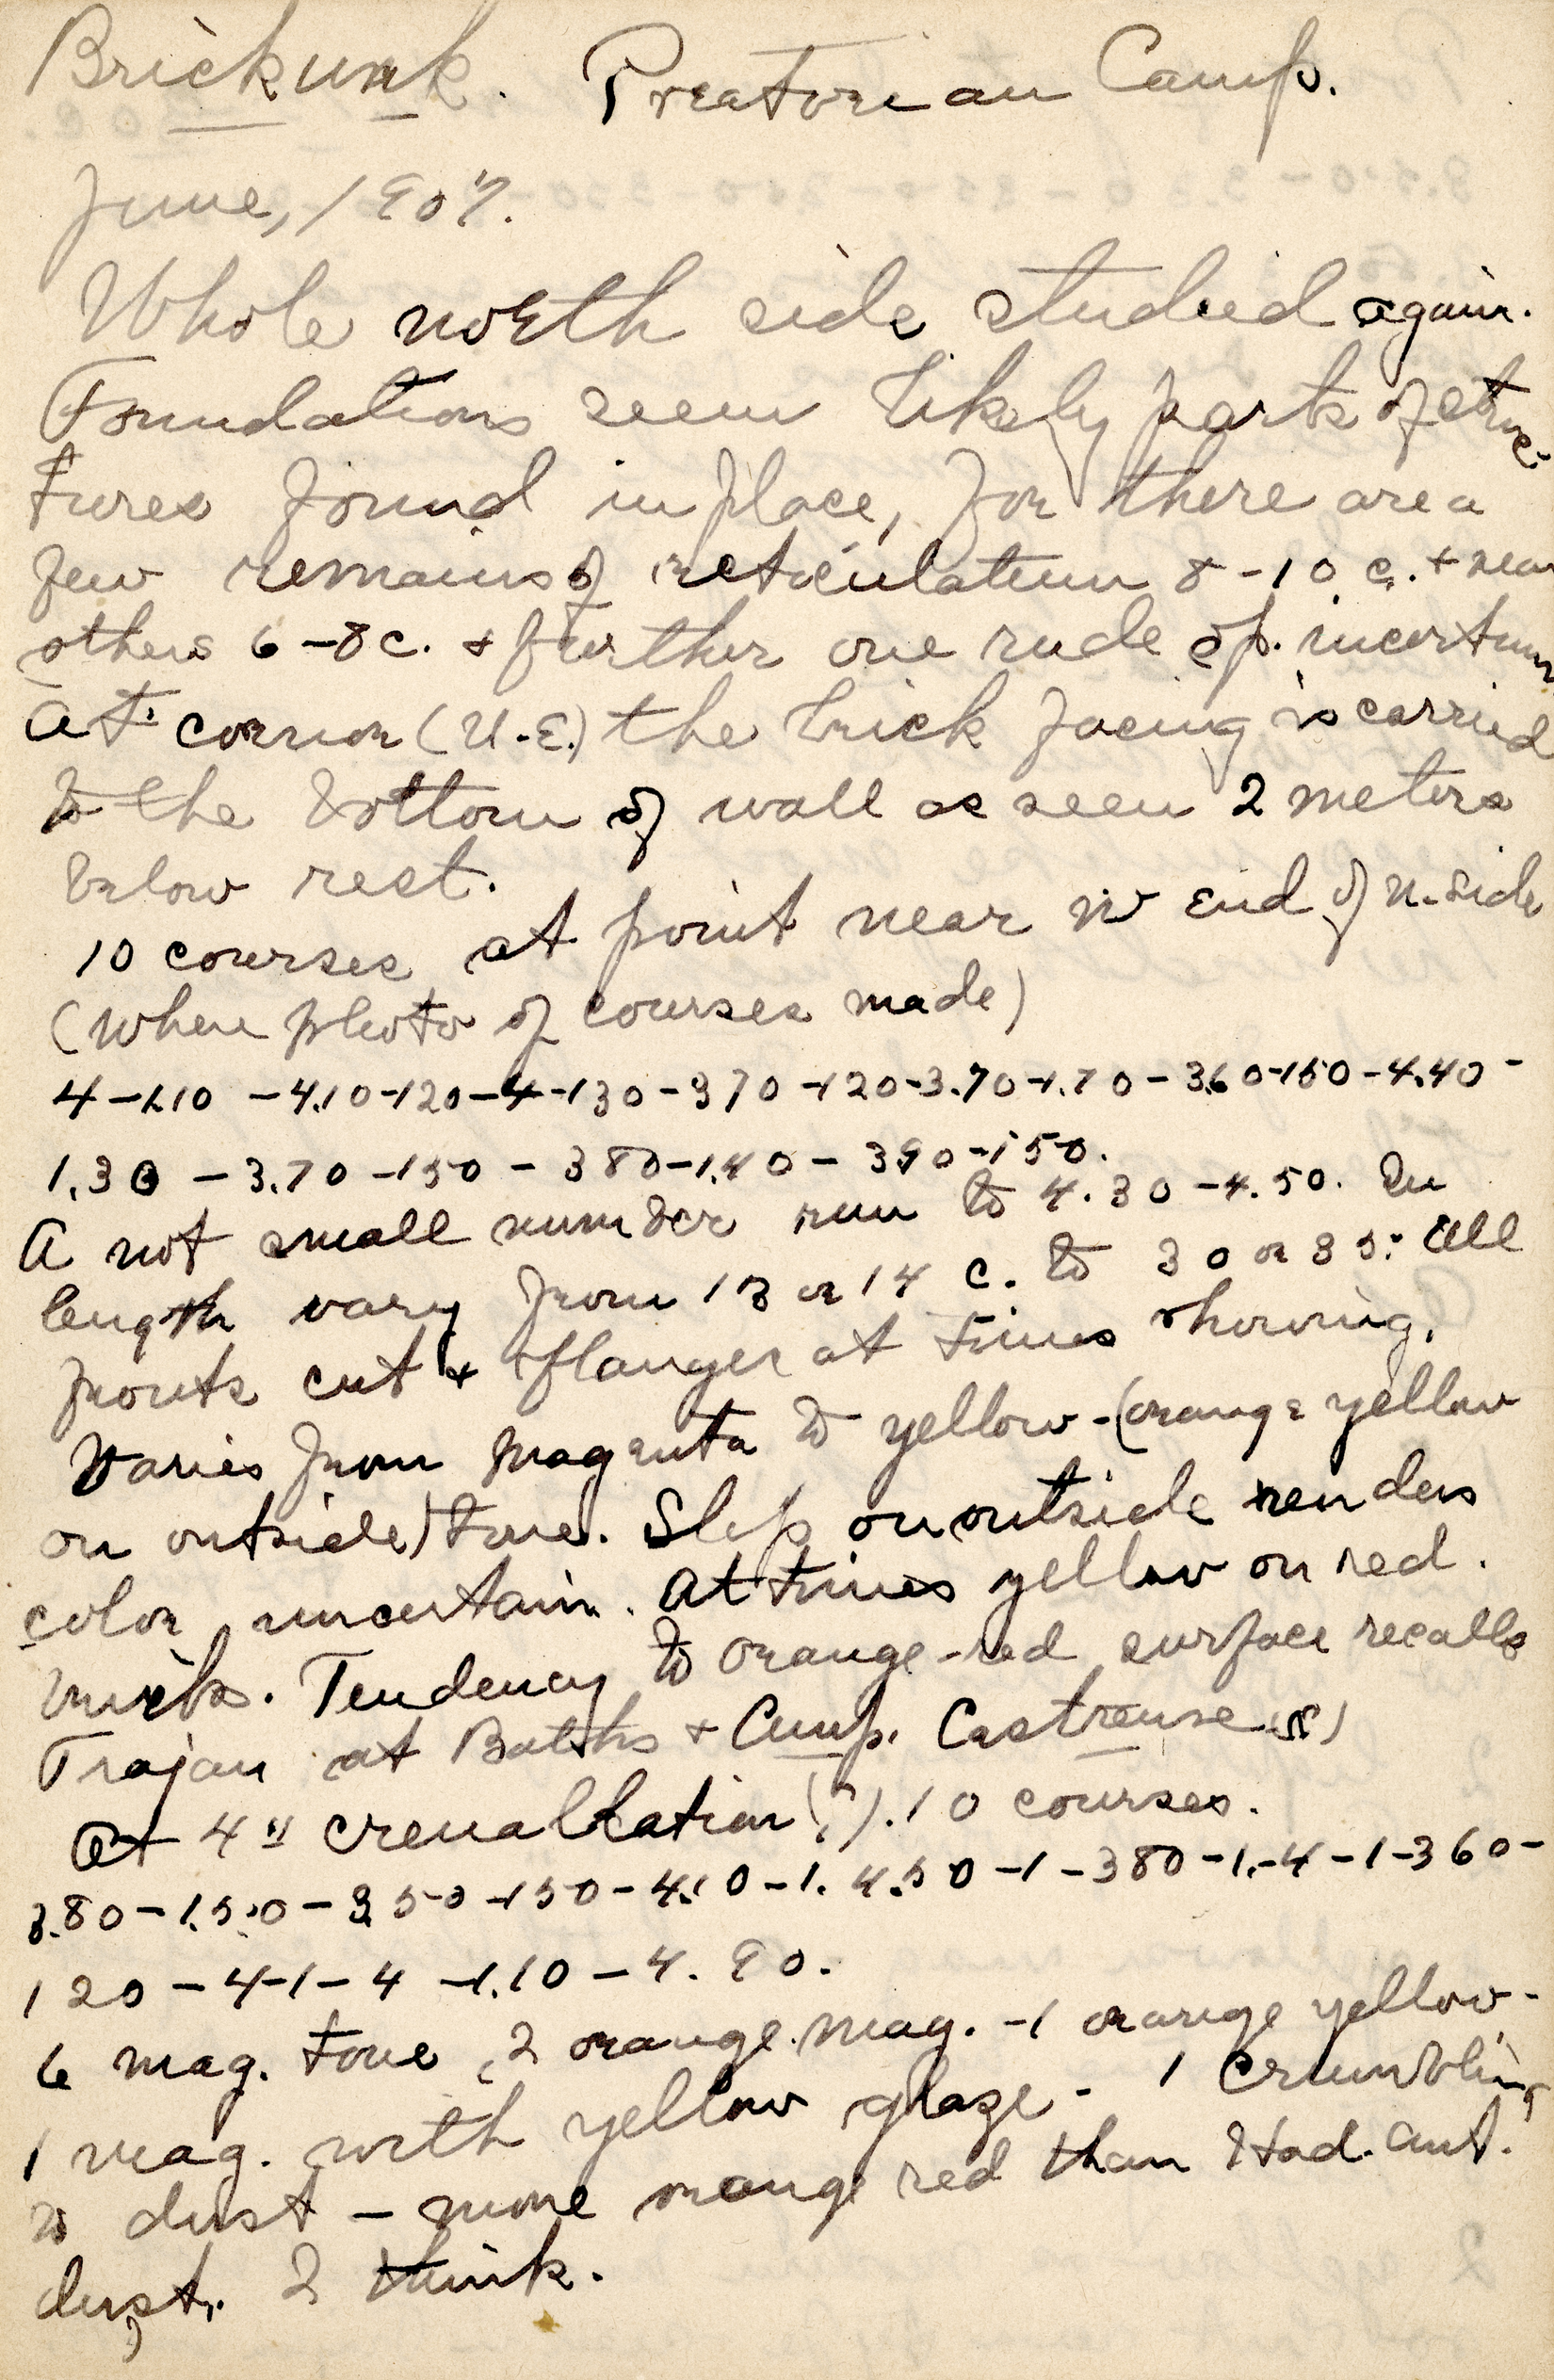 Brickwork. Pretorian Camp.
June, 1907.
Whole north side studied again.
Foundations seem likely parts of struc-
tures found in place, for there are a
few remains of reticulatum 8-10 c. + near
others 6-8 c. + further one rude op. incertum
At corner (N.E.) the brick facing is carried
to the bottom of wall as seen 2 meters
below rest.
10 courses at point near W end of N. side
(where photo of courses made)
4 - 1.10 - 4.10 - 120 - 4 - 130 - 370 - 120 - 3.70 - 1.70 - 3.60 - 150 - 4.40 -
1.30 - 3.70 - 150 - 380 - 1.40 - 390 - 150.
A not small number run to 4.30 - 4.50. In
length vary from 13 or 14 c. to 30 or 35. All
fronts cut + flanges at times showing.
Varies from magenta to yellow - (orange yellow
on outside) tone. Slip on outside renders
color uncertain. At times yellow on red.
bricks. Tendency to orange-red surface recalls
Trajan at Baths + Amp. Castrense
At 4" crenallation (?). 10 courses.
3.80 - 1.50 - 3.50 - 150 - 4.10 - 1. 4.50 - 1 - 380 - 1. - 4 - 1 - 360 -
120 - 4 - 1 - 4 - 1.10 - 4. 90.
6 mag. tone, 2 orange mag. - 1 orange yellow -
1 mag. with yellow glaze - 1 crumbling
to dust - more orange red than Had. Ant.
dust, I think.